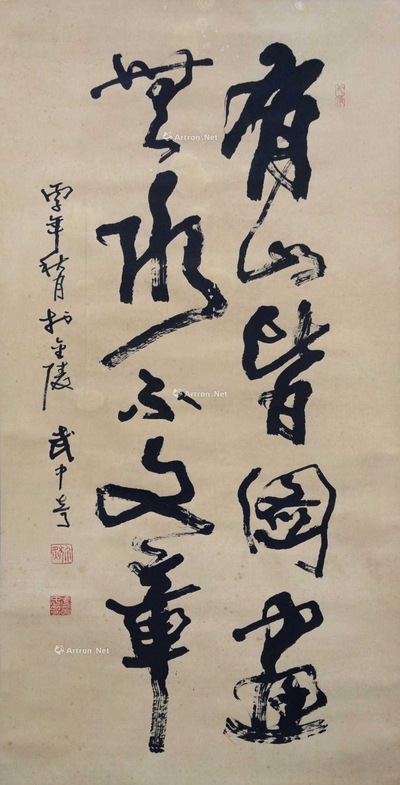 有山皆图画
無水不文章
丙年秋月於金陵 武中奇
Artron.Net
Artron.Net
Artron.Net